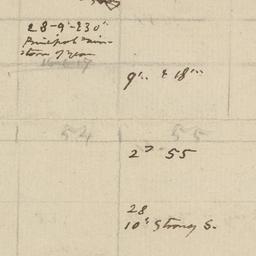 28-9-30
Principal rain
storm of year
9 & 18
54 55
2 55
28
10 Strong S.